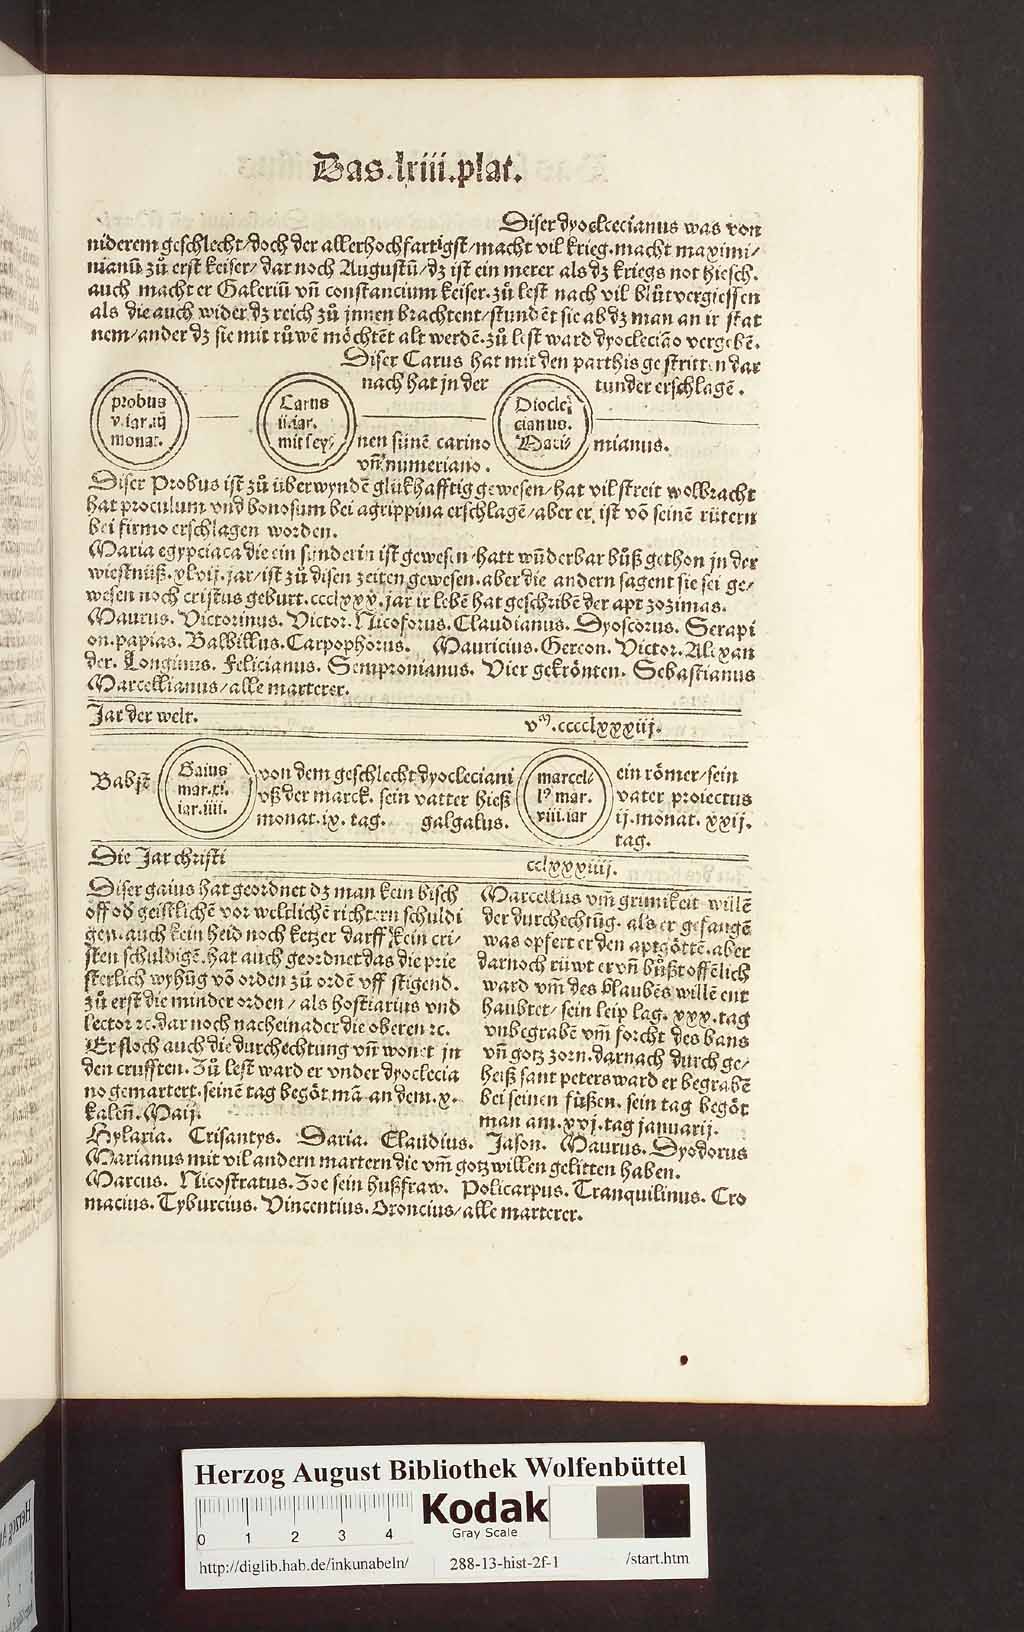 Das.lxiii.plat.
Diser dyoclecianus was von
niderem geschlecht/doch der allerhochfartigst/macht vil krieg.macht maximi/
nianū zů erst keiser/dar noch Augustū/dz ist ein merer als dz kriegs not hiesch.
auch macht er Galeriū vn̄ constancium keiser.zů lest nach vil blůtvergiessen
als die auch wider dz reich zů jnnen brachtent/stundēt sie ab dz man an ir stat
nem/ander dz sie mit růwē möchtēt alt werdē.zů lest ward dyocleciāo vergebē.
Diser Carus hat mit den parthis gestritten dar
nach hat jn der tunder erschlagē.
probus
v.iar.iiij
monat.
Carus
ii.iar.
mit sey/
nen sünē carino
vn̄ numeriano.
Diocle/
cianus.
Maxi/
mianus.
Diser Probus ist zů überwyndē glükhafftig gewesen/hat vil streit wolbracht
hat proculum vnd bonosum bei agrippina erschlagē/aber er ist vō seinē rütern
bei firmo erschlagen worden.
Maria egypciaca die ein sunderin ist gewesen/hatt wūderbar bůß gethon jn der
wiestnüß.xlvij.jar/ist zů disen zeiten gewesen.aber die andern sagent sie sei ge/
wesen noch cristus geburt.ccclxxx.jar ir lebē hat geschribē der apt zozimas.
Maurus. Victorinus. Victor. Nicoforus. Claudianus. Dyoscorus. Serapi
on.papias. Balbillus.Carpophorus. Mauricius.Gereon. Victor.Alexan
der. Longinus. Felicianus. Sempronianus. Vier gekrönten. Sebastianus
Marcellianus/alle marterer.
Jar der welt. vᵐ.cccclxxxiij.
Babst
Gaius
mar.xi.
iar.iiii.
von dem geschlecht dyocleciani
vß der marck. sein vatter hieß
monat.ix. tag. galgalus.
marcel/
lꝰ mar.
viii.iar
ein römer/sein
vater proiectus
ij.monat.xxij.
tag.
Die Jar christi cclxxxiiij.
Diser gaius hat geordnet dz man kein bisch
off od geistlichē vor weltlichē richtern schuldi
gen.auch kein heid noch ketzer darff kein cri/
sten schuldigē.hat auch geordnet das die prie
sterlich wyhūg vō orden zů ordē vff stigend.
zů erst die minder orden/als hostiarius vnd
lector ꝛc.dar noch nacheinader die oberen ꝛc.
Er floch auch die durchechtung vn̄ wonet jn
den crufften. Zů lest ward er vnder dyoclecia
no gemartert.seinē tag begöt mā an dem.x.
kalen̄.Maij.
Marcellus vm̄ grimikeit willē
der durchechtūg.als er gefangē
was opfert er den aptgöttē.aber
darnoch rüwt er vn̄ bůßt offēlich
ward vm̄ des glaubēs willē ent
haubtet/sein leip lag.xxx.tag
vnbegrabē vm̄ forcht des bans
vn̄ gotz zorn.darnach durch ge/
heiß sant peters ward er begrabē
bei seinen füßen.sein tag begöt
man am.xvj.tag januarij.
Hylaria. Crisantys. Daria. Claudius. Jason. Maurus. Dyodorus
Marianus mit vil andern martern die vm̄ gotz willen gelitten haben.
Marcus. Nicostratus. Zoe sein hußfraw. Policarpus. Tranquilinus. Cro
macius. Tyburcius. Vincentius. Oroncius/alle marterer.
Herzog August Bibliothek Wolfenbüttel
Kodak
Gray Scale
0 1 2 3 4
http://diglib.hab.de/inkunabeln/ 288-13-hist-2f-1 /start.htm